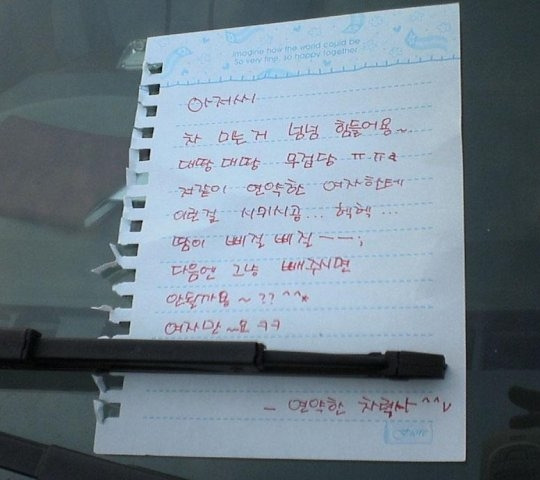 Imagine how the world could be
So very fine, so happy together
아저씨
차 미는거 넘넘 힘들어용~
대땅 대땅 무겁당 ㅠ.ㅠ
저같이 연약한 여자한테
이런걸 시키시공... 헥헥...
땀이 삐질 삐질 ㅡㅡ;
다음엔 그냥 빼주시면
안될까용 ~ ?? ^^*
여자만 ~요 ㅋㅋ
- 연약한 차력사 ^^V